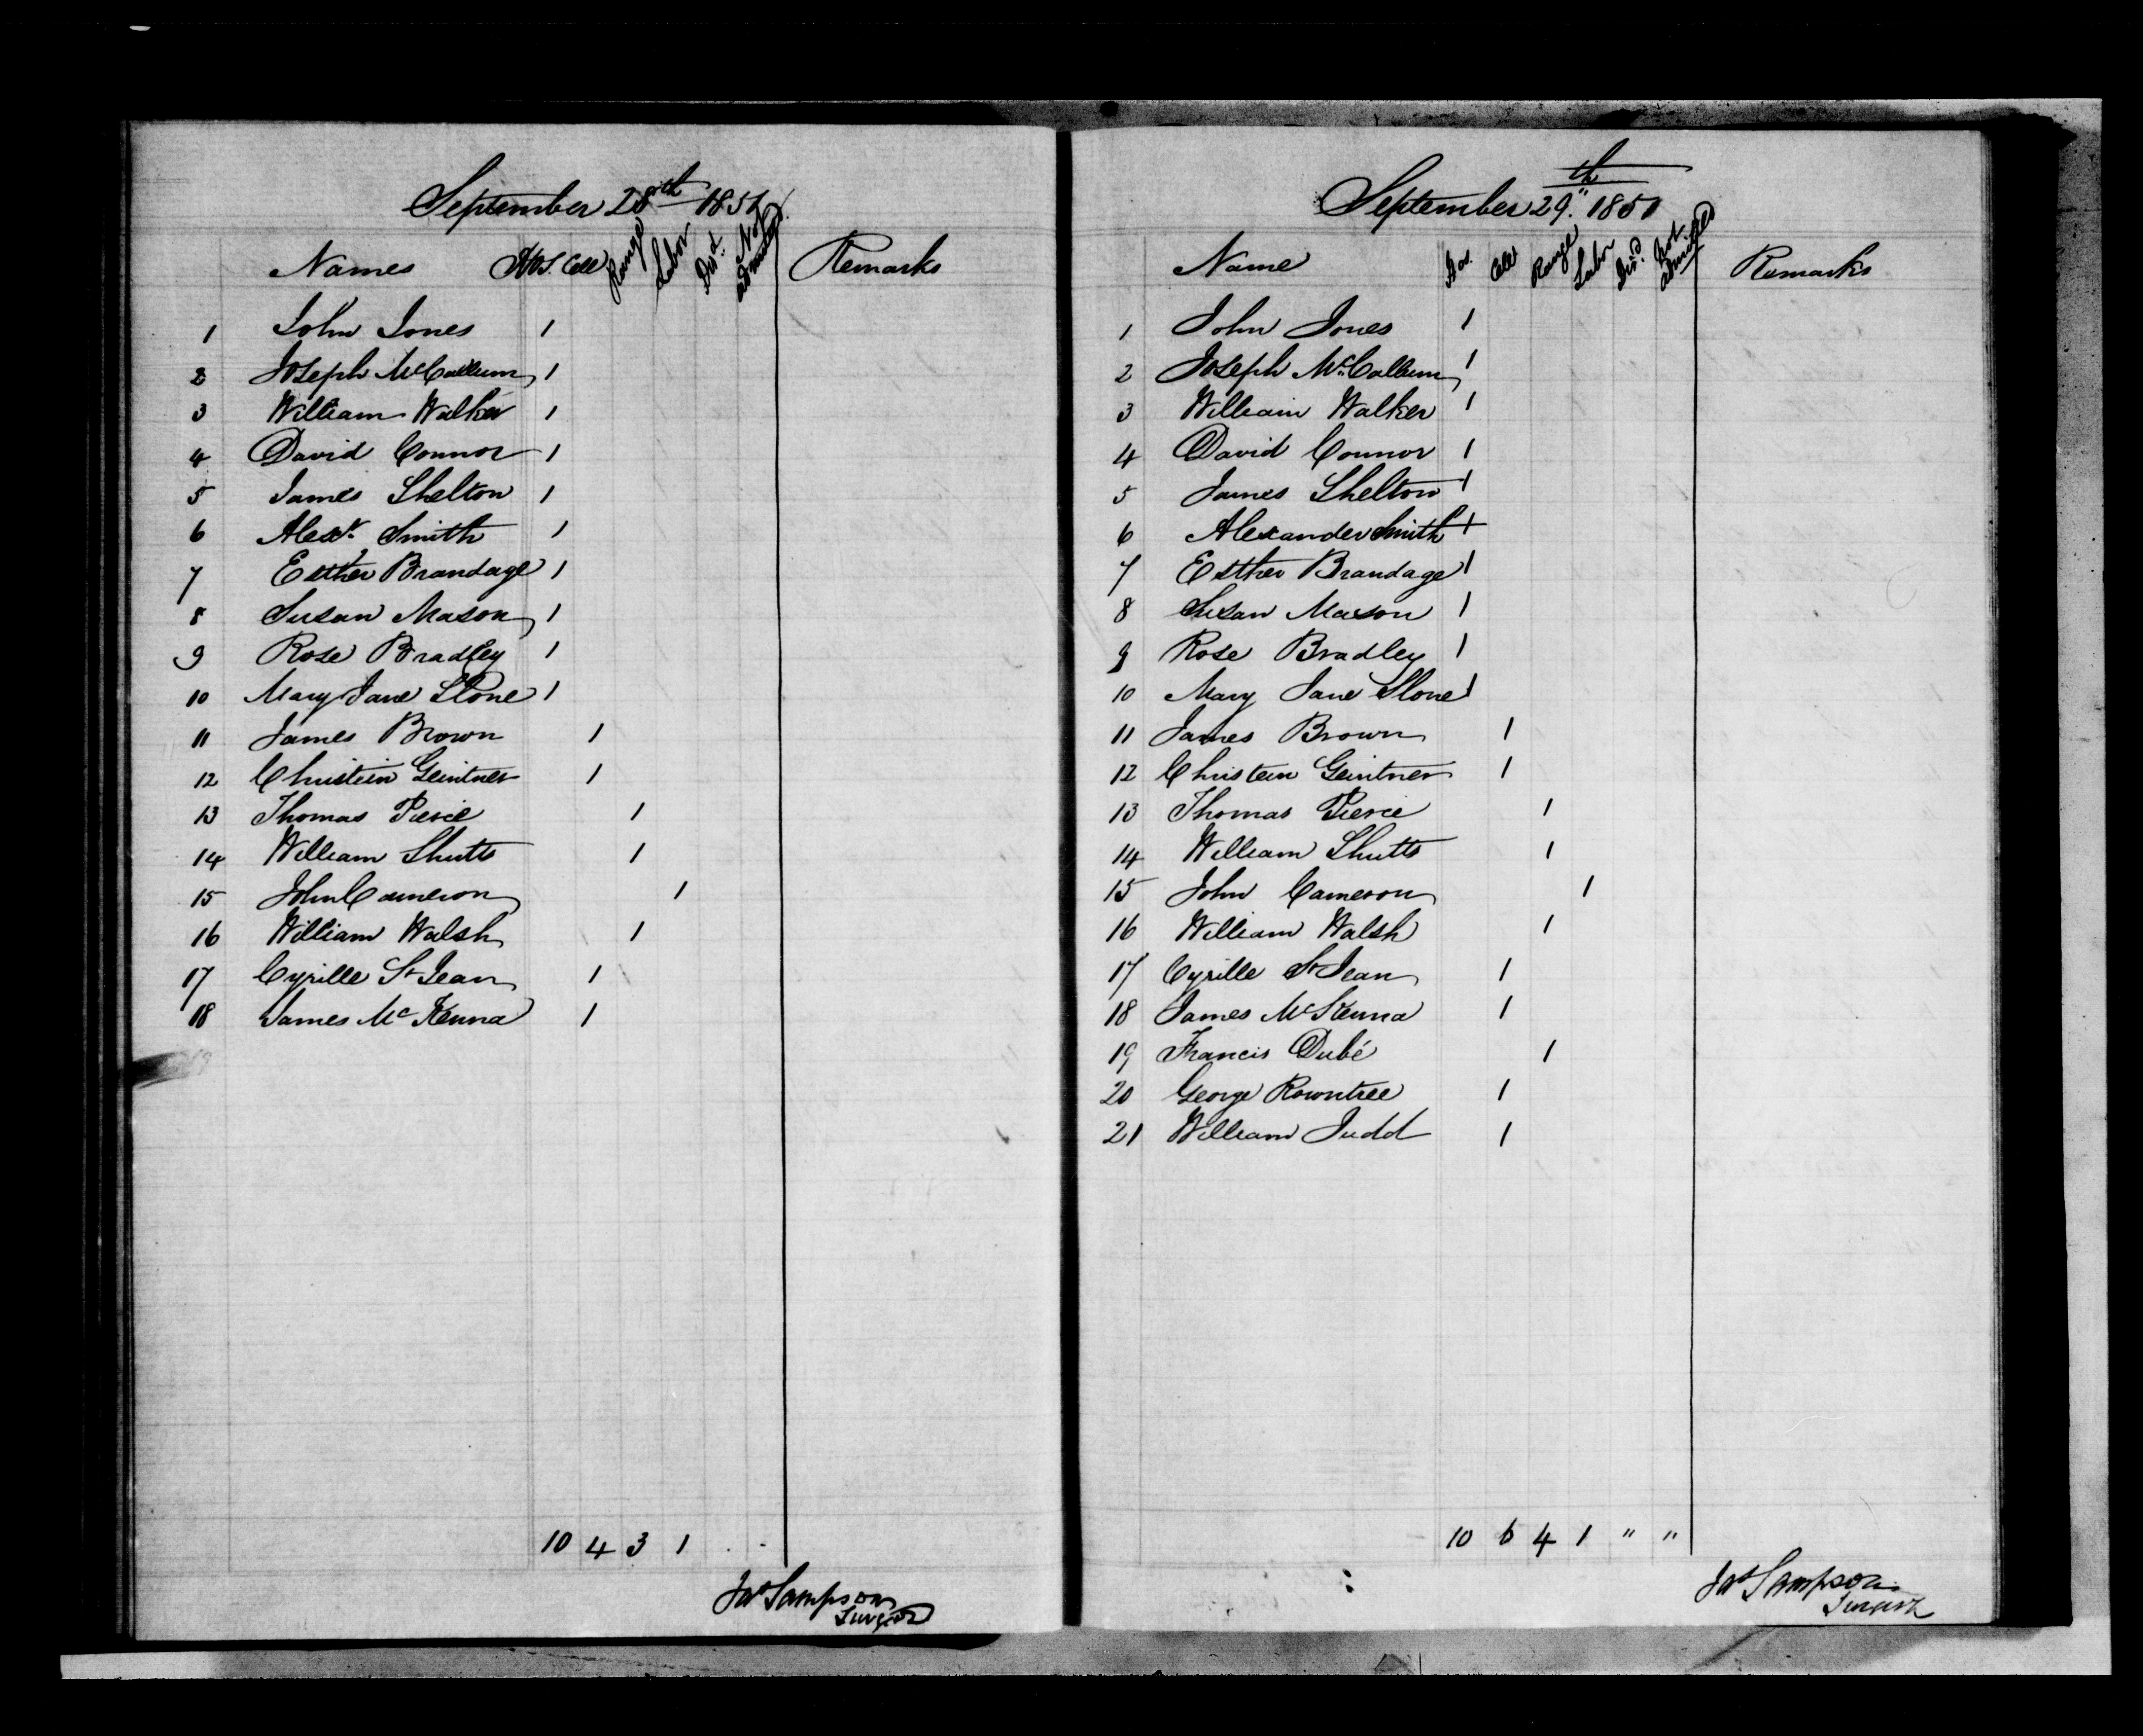 September 28th 1851
Names Hos. Cell Range Labor Dis.d Not admitted Remarks
1 John Jones 1
2 Joseph McCallum 1
3 William Walker 1
4 David Connor 1
5 James Shelton 1
6 Alexr. Smith 1
7 Esther Brandage 1
8 Susan Mason 1
9 Rose Bradley 1
10 Mary Jane Slone 1
11 James Brown 1
12 Christien Geintner 1
13 Thomas Pierce 1
14 William Shutts 1
15 John Cameron 1
16 William Walsh 1
17 Cyrille St Jean 1
18 James McKenna 1
10 4 3 1 . .
Jas Sampson
Surgeon
September 29th. 1851
Name Hos. Cell Range Labor Dis.d Not admitted Remarks
1 John Jones 1
2 Joseph McCallum 1
3 William Walker 1
4 David Connor 1
5 James Shelton 1
6 Alexander Smith 1
7 Esther Brandage 1
8 Susan Mason 1
9 Rose Bradley 1
10 Mary Jane Slone 1
11 James Brown 1
12 Christien Geintner 1
13 Thomas Pierce 1
14 William Shutts 1
15 John Cameron 1
16 William Walsh 1
17 Cyrille St Jean 1
18 James McKenna 1
19 Francis Dubé 1
20 George Rowntree 1
21 William Judd 1
10 6 4 1 " "
Jas Sampson
Surgeon